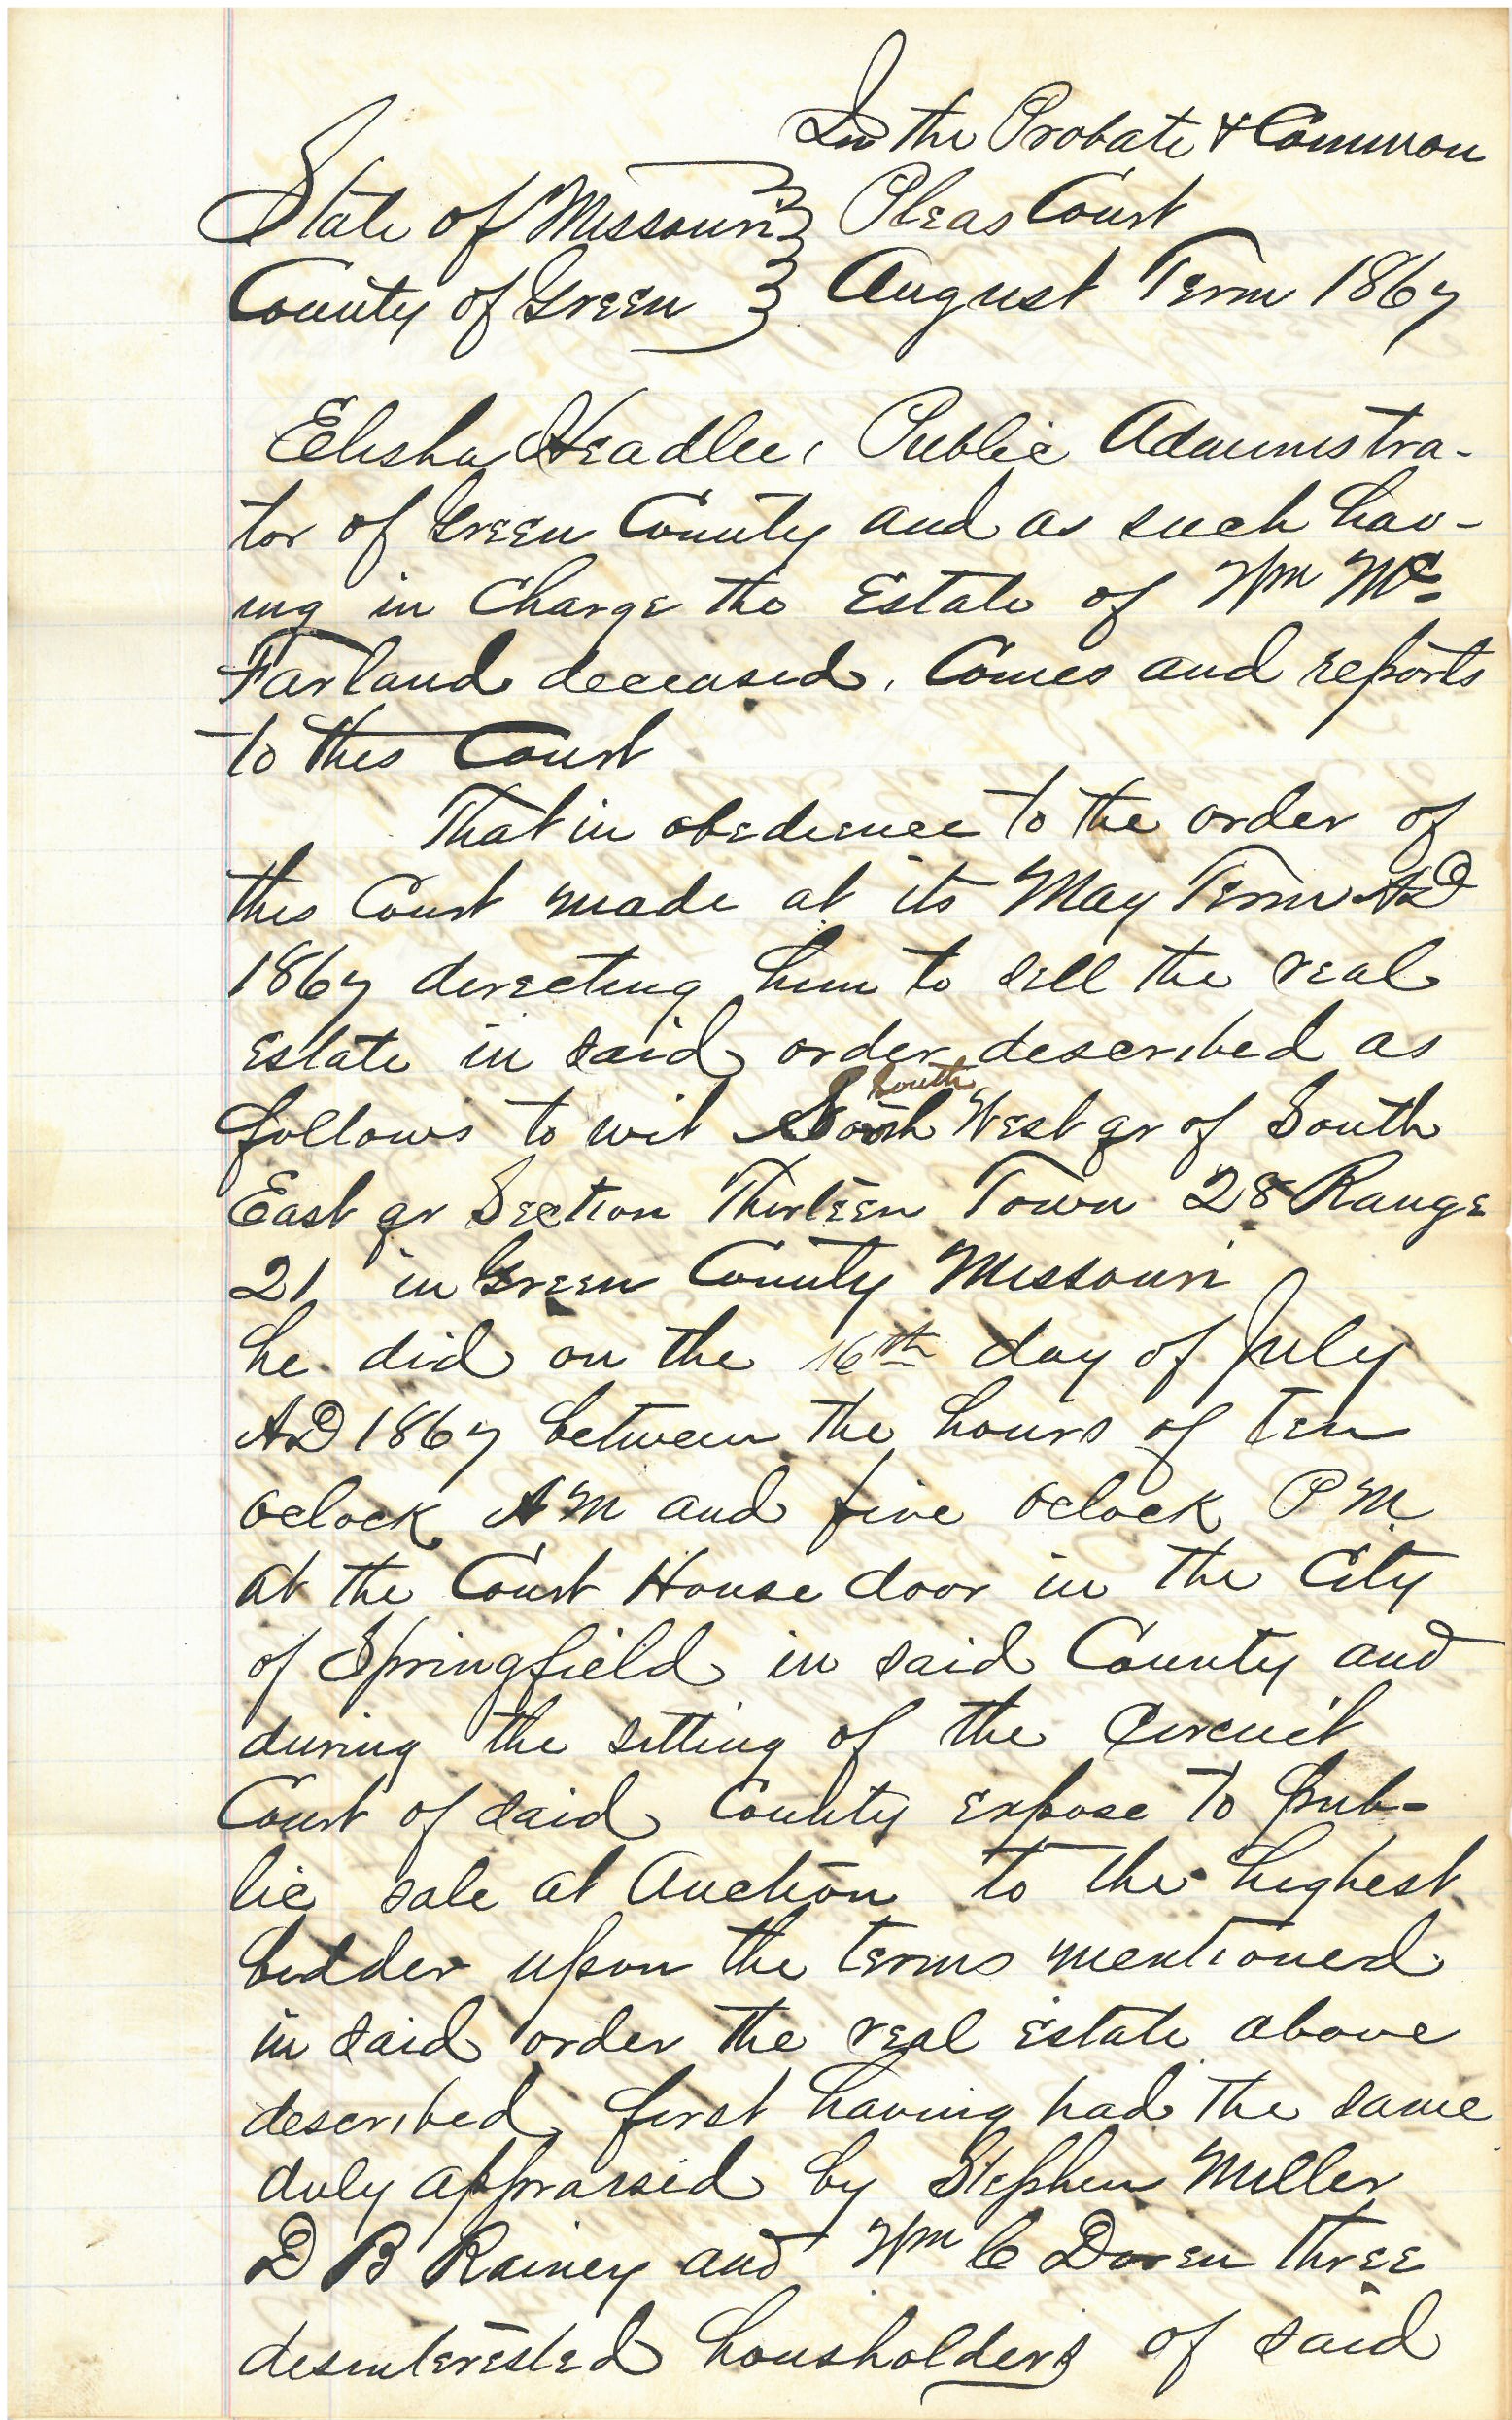 In the Probate & Common
State of Missouri } Pleas Court
County of Green } August Term 1867
Elisha Headlee, Public Administra-
tor of Green County and as such hav-
ing in Charge the Estate of Wm Mc-
Farland deceased. Comes and reports
to this Court
That in obedience to the order of
this Court made at its May Term AD
1867 directing him to sell the real
estate in said order described as
south
follows to wit West qr of South
East qr Section Thirteen Town 28 Range
21 in Green County Missouri
he did on the 16th day of July
AD 1867 between the hours of ten
oclock AM and five oclock PM
at the Court House door in the City
of Springfield in said County and
during the sitting of the Circuit
Court of said County expose to pub-
lic sale at Auction to the highest
bidder upon the terms mentioned
in said order the real estate above
described, first having had the same
duly appraised by Stephen Miller
D B Rainey and Wm C Doren three
desinterested housholders of said